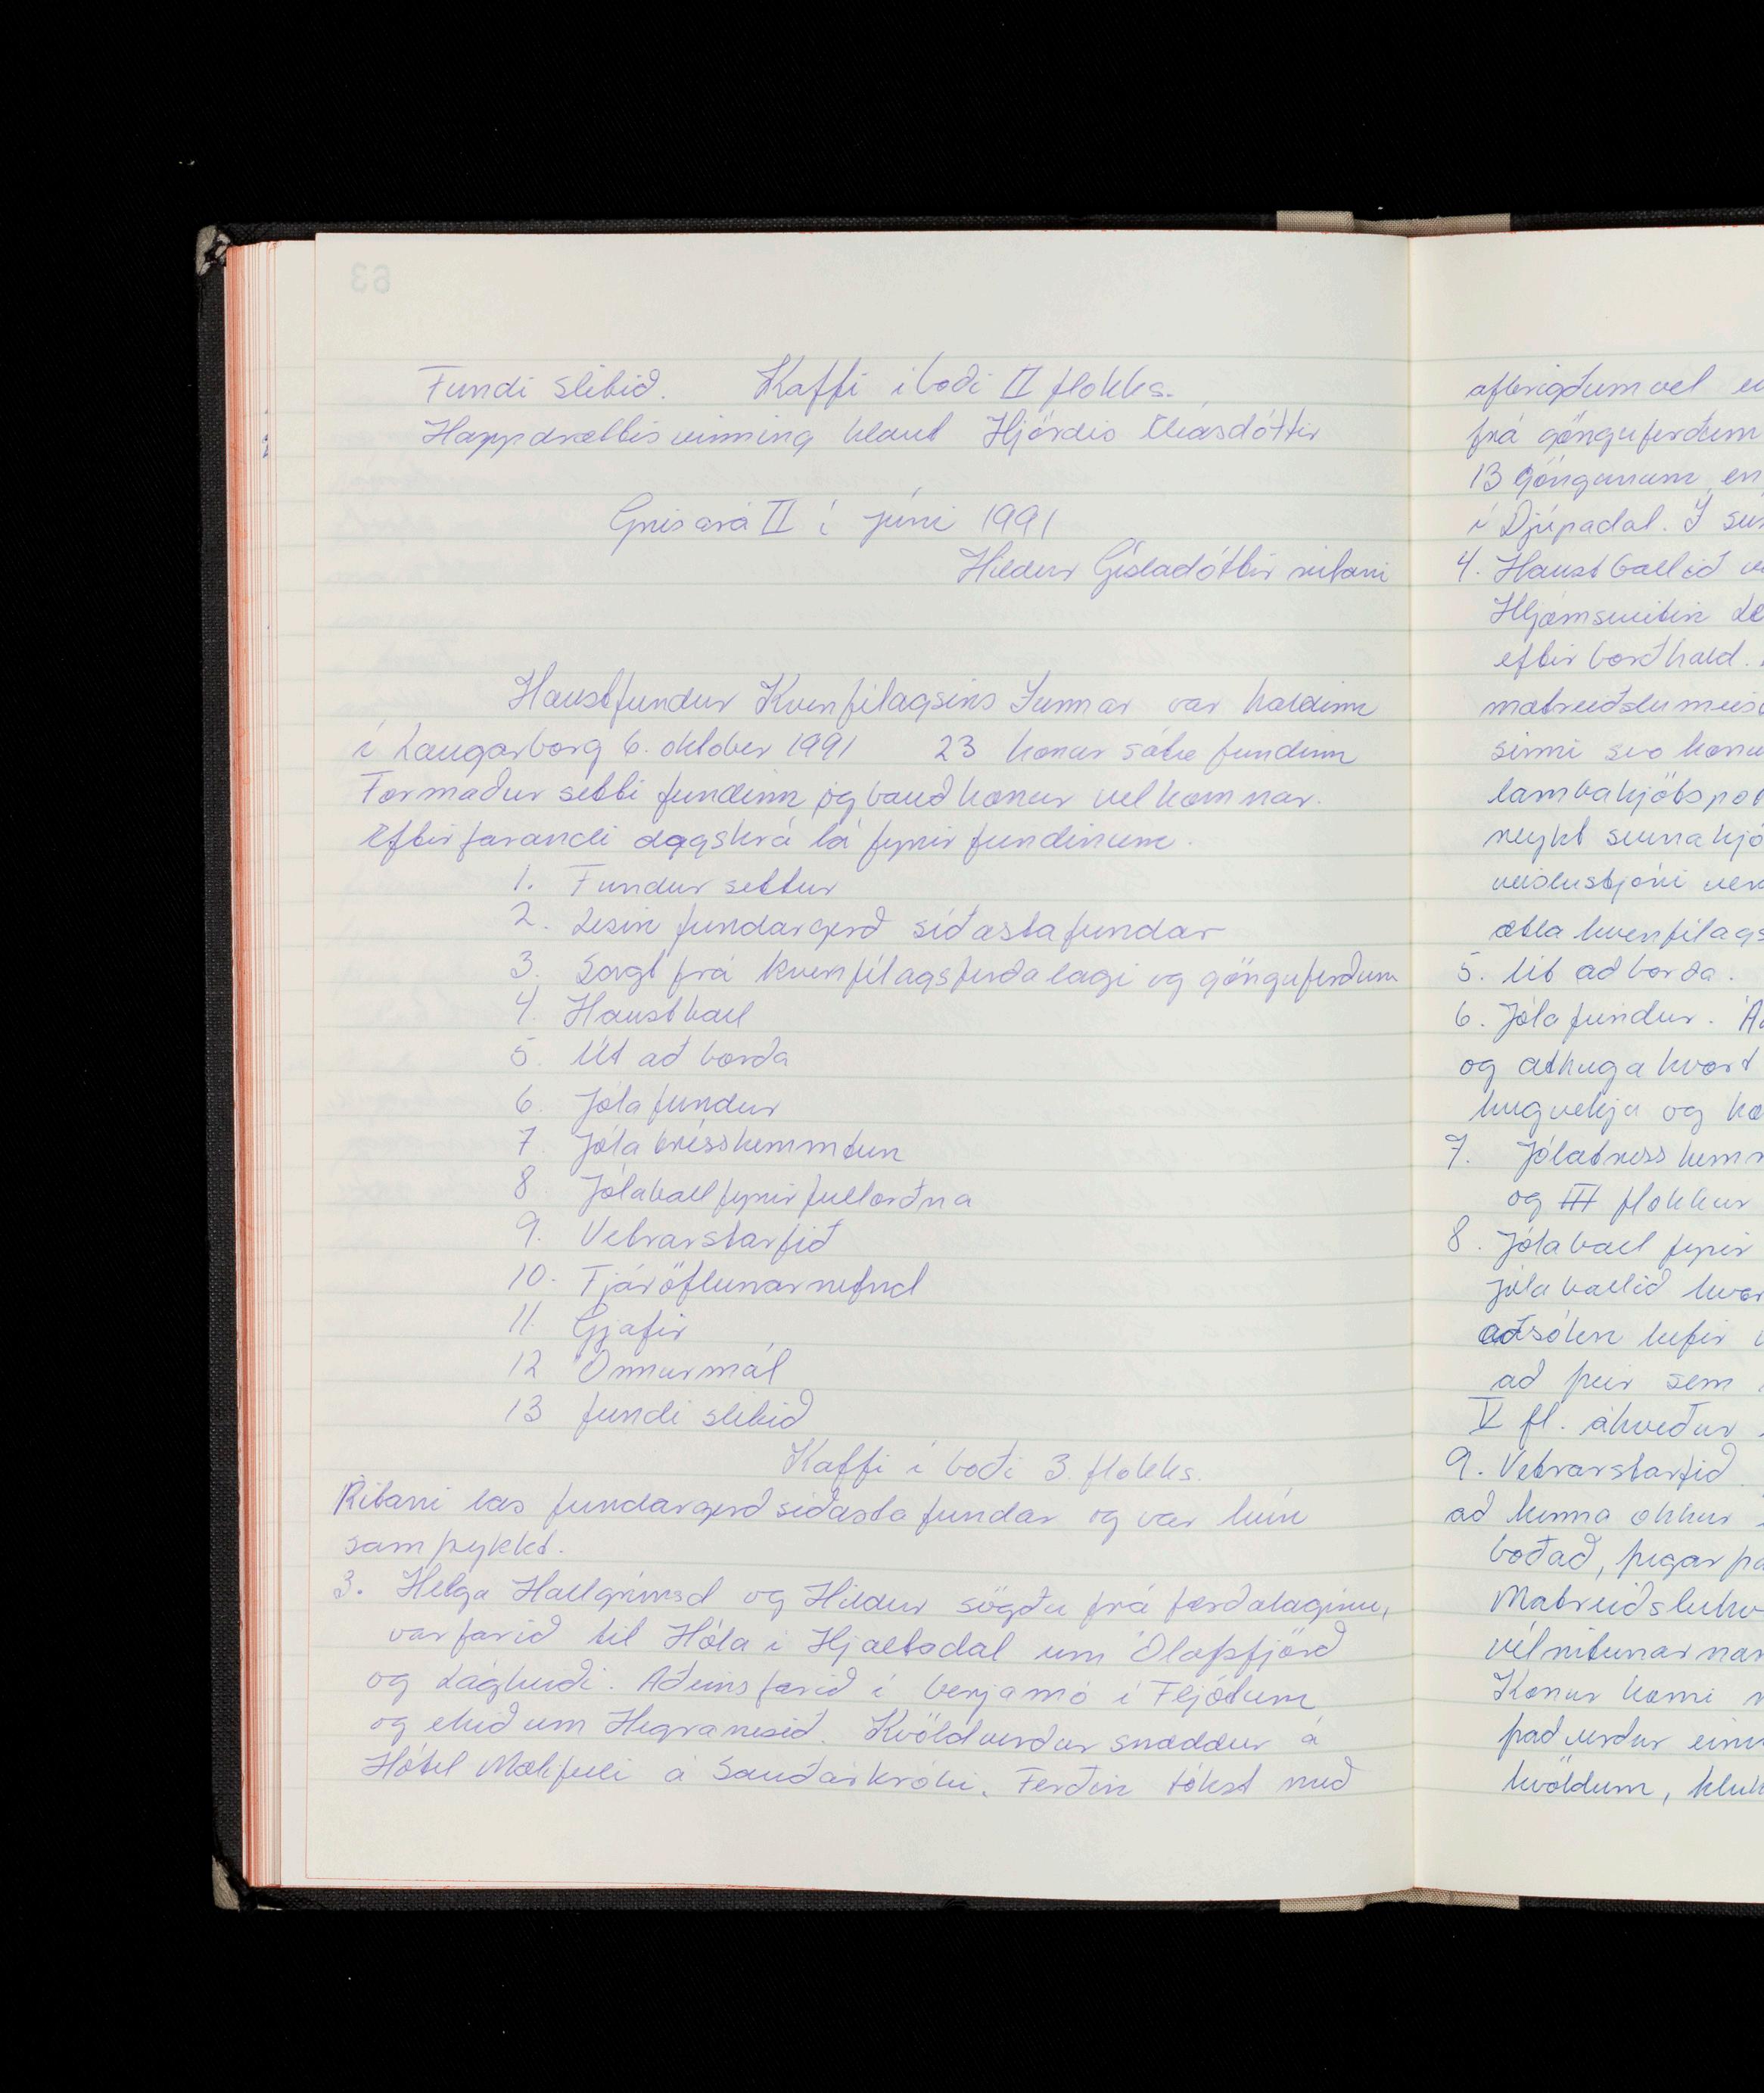 63
Fundi slitið. Kaffi í boði II flokks.
Happdrættisvinning hlaut Hjördís Elíasdóttir
Grísará II í júní 1991
Hildur Gísladóttir ritari
Haustfundur Kvenfélagsins Iðunnar var haldinn
í Laugarborg 6. október 1991 23 konur sátu fundinn
Formaður setti fundinn og bauð konur velkomnar.
Eftirfarandi dagskrá lá fyrir fundinum.
1. Fundur settur
2. Lesin fundargerð síðasta fundar
3. Sagt frá kvenfélagsferðalagi og gönguferðum
4. Haustball
5. Út að borða
6. Jólafundur
7 Jólatrésskemmtun
8 Jólaball fyrir fullorðna
9. Vetrarstarfið
10. Fjáröflunarnefnd
11. Gjafir
12 Önnur mál
13 fundi slitið
Kaffi í boði 3. flokks.
Ritari las fundargerð síðasta fundar og var hún
samþykkt.
3. Helga Hallgrímsd og Hildur sögðu frá ferðalaginu,
var farið til Hóla í Hjaltadal um Ólafsfjörð
og Lágheiði. Aðeins farið í berjamó í Fljótum
og ekið um Hegranesið. Kvöldverður snæddur á
Hótel Mælifelli á Sauðárkróki. Ferðin tókst með
afbrigðum vel
frá gönguferðum
13 göngunum en
í Djúpadal. Í
4. Haustballið
Hljómsveitin
eftir borðhald.
sinni svo
reykt svínakjö
veislustjóri
ætla kvenfélags
5. Út að borða.
6. Jólafundur.
og athuga hvort
hugvekja og
7. Jólatréss
og III flokkur
8. Jólaball fyrir
jólaballið
aðsókn hefir
að þeir sem
V fl. ákveður
9. Vetrarstarfið
að kenna okkur
boðað, þegar
Matreiðslu
vélritunar
Konur komi
það verður
kvöldum,